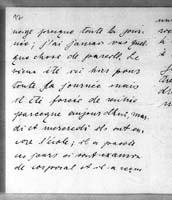 neige presque toute la jour
née; j'ai jamais vu quel
que chose de pareille. Le
vieux été ici hors pour
toute la journée mais
il été forcé de rentré
parceque aujourd'hui, mar
di et mercredi ils ont en
core l'école; il a passé
ces jours ci sont examen
de corporal et il a reçus